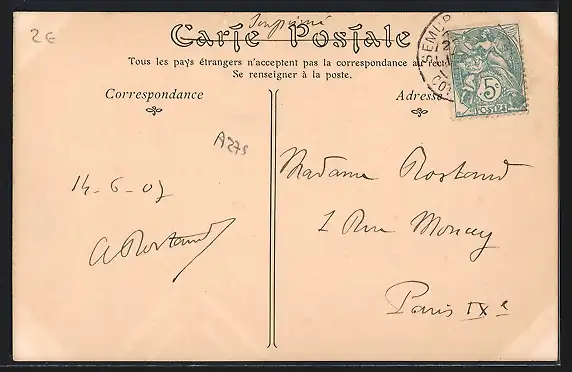 2€
Imprimé
Carte Postale
Tous les pays étrangers n'acceptent pas la correspondance au recto
Se renseigner à la poste.
Correspondance
Adresse
SEMUR
5c
POSTES
A275
14-6-07
A Rostand
Madame Rostand
1 Rue Moncey
Paris IXe